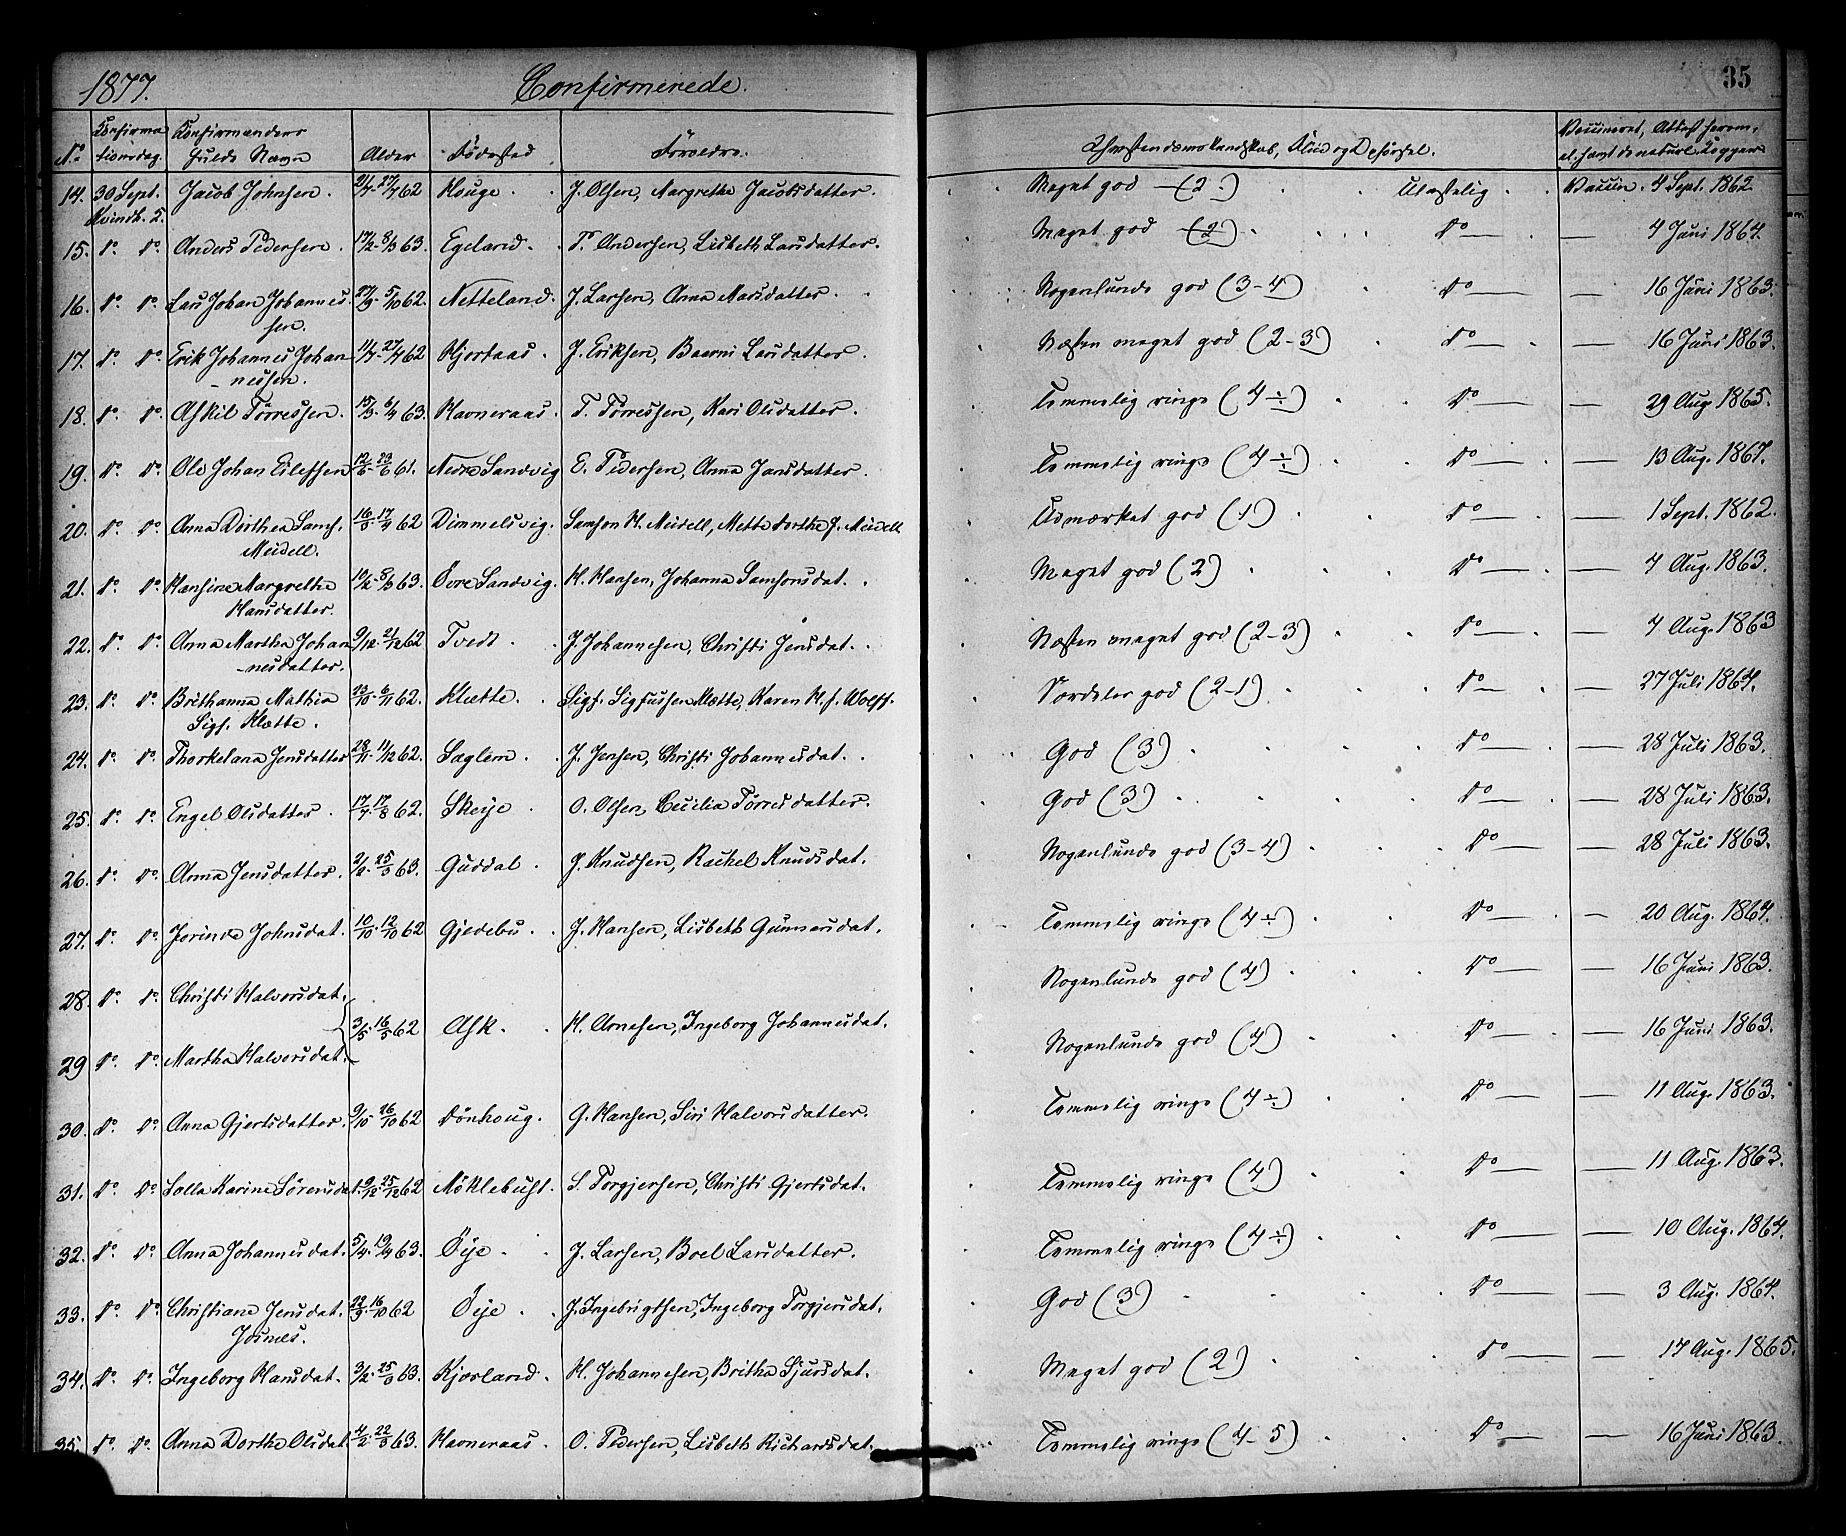 1877. Confirmerede. 35
No Konfirmationsdag. Konfirmandens fulde Navn Alder Fødested Forældre. Christendomskundskab, Flid og Opførsel. Vaccineret,
14. 30 Sept. Jacob Johnsen. 62 Houge J. Olsen, Margrethe Jacobsdatter. Meget god (2.) Vaccin. 4 Sept. 1862
15. do do Anders Pedersen. 63. Egeland. P. Andersen, Lisbeth Larsdatter. Meget god (2) do 4 Juni 1864.
16. do do Lars Johan Johannes- 62. Netteland. J. Larsen, Anna Marsdatter. Nogenlunde god (3-4) do 16 Juni 1863.
sen.
17. do do Erik Johannes Johan- 62 Hjortaas. J. Eriksen, Larsdatter. Næsten meget god (2-3) do 16 Juni 1863.
-nessen.
18. do do Askil Tørressen. 15/3 6/4 63. Havneraas. T. Tørressen, Kari Olsdatter. Temmelig ringe (4÷) do 29 Aug. 1865.
19. do do Ole Johan Eilefsen 61. Nedre Sandvig E. Pedersen, Anna Jansdatter. Temmelig ringe (4÷) do 13 Aug. 1867.
20. do do Anna Dorthea Sams. 62 Dimmelsvig. Samson H. Meidell, Mette Dorthe J. Meidell Udmærket god (1) do 1 Sept. 1862.
Meidell.
21. do do Hansine Margrethe 63. Øvre Sandvig. H. Hansen, Johanna Samsonsdat. Meget god (2) do 4 Aug. 1863.
Hansdatter.
22. do do Anna Martha Johan 9/12 21/12 62 Tvedt J. Johannesen, Christi Jensdat. Næsten meget god (2-3) do 4 Aug. 1863
-nesdatter.
23. do do Brithanna Mathea 62. Klætte. Sigf. Sigfussen Klætte, Karen H. f. Wolff. Særdeles god (2-1) do 27 Juli 1864.
Sigf. Klætte.
24. do do Thorkelana Jensdatter 28/11 11/12 62. Seglem. J. Jensen, Christi Johannesdat. God (3) do 28 Juli 1863.
25. do do Engel Olsdatter. 17/7 17/8 62. Skeije O. Olsen, Cecilia Tørresdatter. God (3) do 28 Juli 1863.
26. do do Anna Jensdatter. 2/2 25/3 63. Guddal J. Knudsen, Rachel Knudsdat. Nogenlunde god (3-4) do 28 Juli 1863.
27. do do Jorinde Johnsdat. 10/10 12/10 62 Gjedebu. J. Hansen, Lisbeth Gunnersdat. Temmelig ringe (4÷) do 20 Aug. 1864.
28. do do Christi Halvorsdat. Nogenlunde god (4) do 16 Juni 1863.
3/5 16/5 62 Ask. H. Arnesen, Ingeborg Johannesdat.
29 do do Martha Halvorsdat. Nogenlunde god (4) do 16 Juni 1863.
30. do do Anna Gjertsdatter. 9/10 26/10 62 Dønhoug. G. Hansen, Siri Halvorsdatter. Temmelig ringe (4÷) do 11 Aug. 1863.
31. do do Solla Karine Sørensdat. 9/12 25/12 62 Møklebust. S. Torgjersen, Christi Gjertsdat. Temmelig ringe (4) do 11 Aug. 1863.
32. do do Anna Johannesdat. 5/4 19/4 63. Øije J. Larsen, Boel Larsdatter. Temmelig ringe (4÷) do 10 Aug. 1864.
33. do do Christiane Jensdat. 22/9 16/10 62 Øije J. Ingebrigtsen, Ingeborg Torgjersdat. God (3) do 3 Aug. 1864.
Josnæs.
34. do do Ingeborg Hansdat. 3/2 25/3 63. Kjærland. H. Johannesen, Britha Sjursdat. Meget god (2) do 17 Aug. 1865.
35. do do Anna Dorthe Olsdat 4/2 22/3 63. Havneraas. O. Pedersen, Lisbeth Richardsdat. Temmelig ringe (4-5) do 16 Juni 1863.